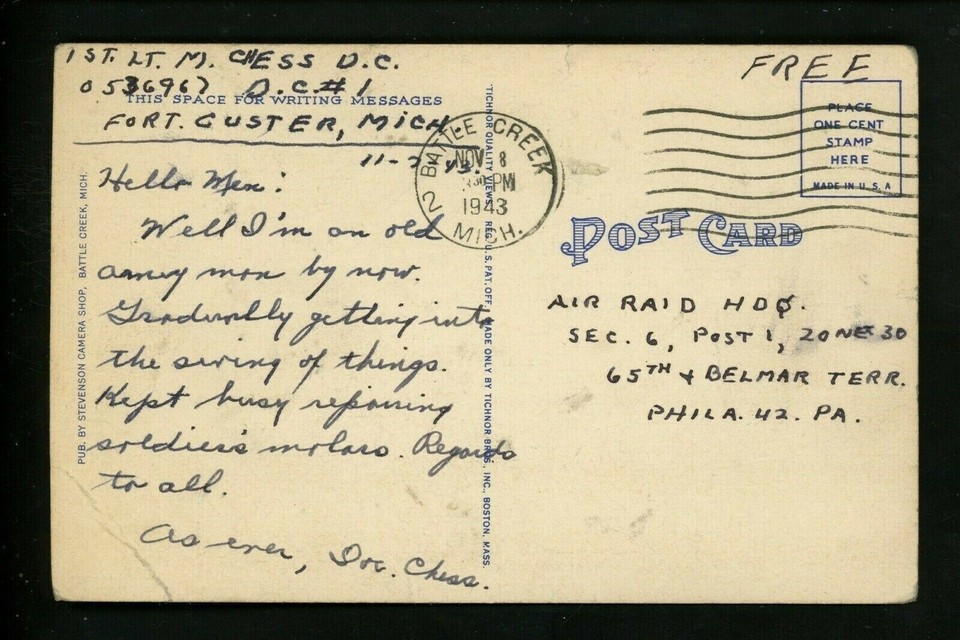 1ST. LT. M. CHESS D.C.
0536967 D.C.#1
THIS SPACE FOR WRITING MESSAGES
FORT. CUSTER, MICH.
11-7-43.
Hello Men:
Well I'm an old
army man by now.
Gradually getting into
the swing of things.
Kept busy repairing
soldier's molars. Regards
to all.
As ever, Doc. Chess.
PUB. BY STEVENSON CAMERA SHOP, BATTLE CREEK, MICH.
"TICHNOR QUALITY VIEWS," REG. U. S. PAT. OFF. MADE ONLY BY TICHNOR BROS., INC., BOSTON, MASS.
BATTLE CREEK
2
NOV 8
PM
1943
MICH.
FREE
PLACE
ONE CENT
STAMP
HERE
MADE IN U.S.A
POST CARD
AIR RAID HDQ.
SEC. 6, POST 1, ZONE 30
65TH & BELMAR TERR.
PHILA. 42. PA.